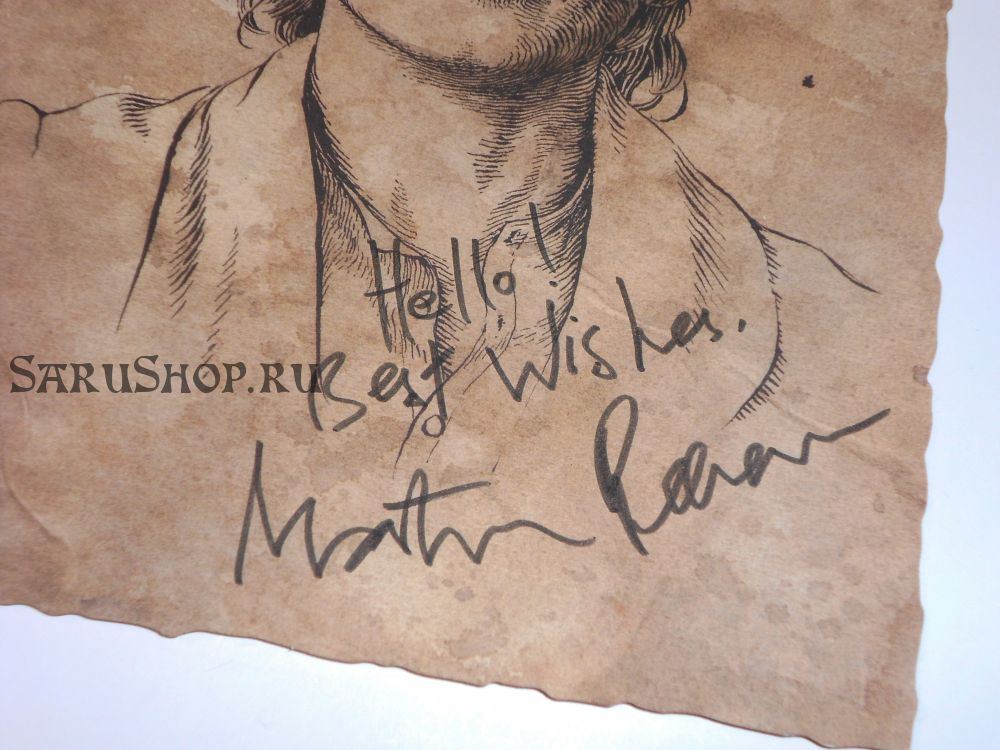 Hello!
Best Wishes.
SARUSHOP.RU
Martin